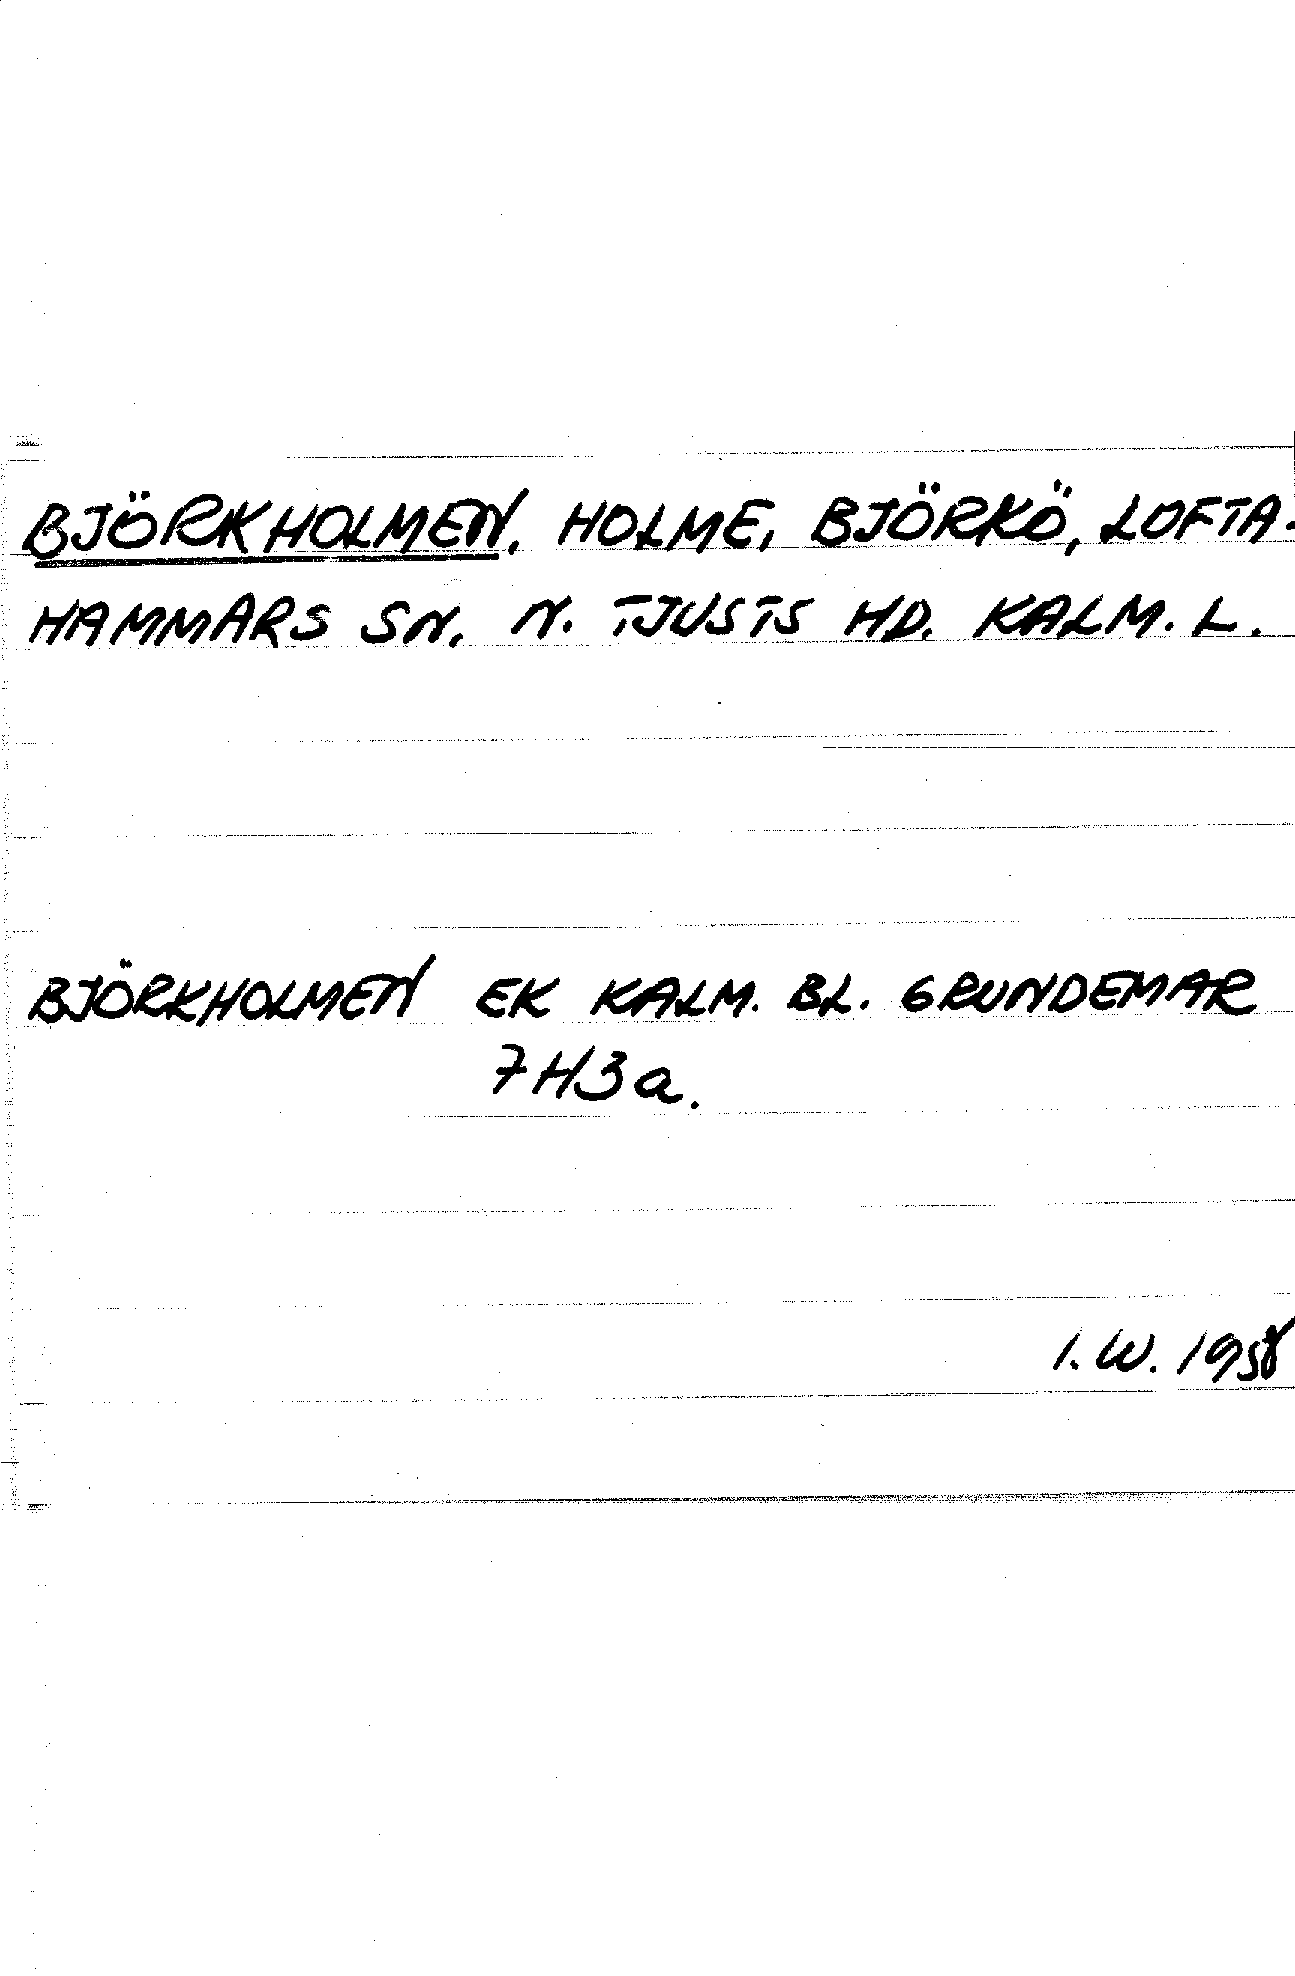 BJÖRKHOLMEN, HOLME, BJÖRKÖ, LOFTA-
HAMMARS SN. N. TJUSTS HD. KALM. L.
BJÖRKHOLMEN EK KALM. BL. GRUNDEMAR
7H3a.
I. W. 1958